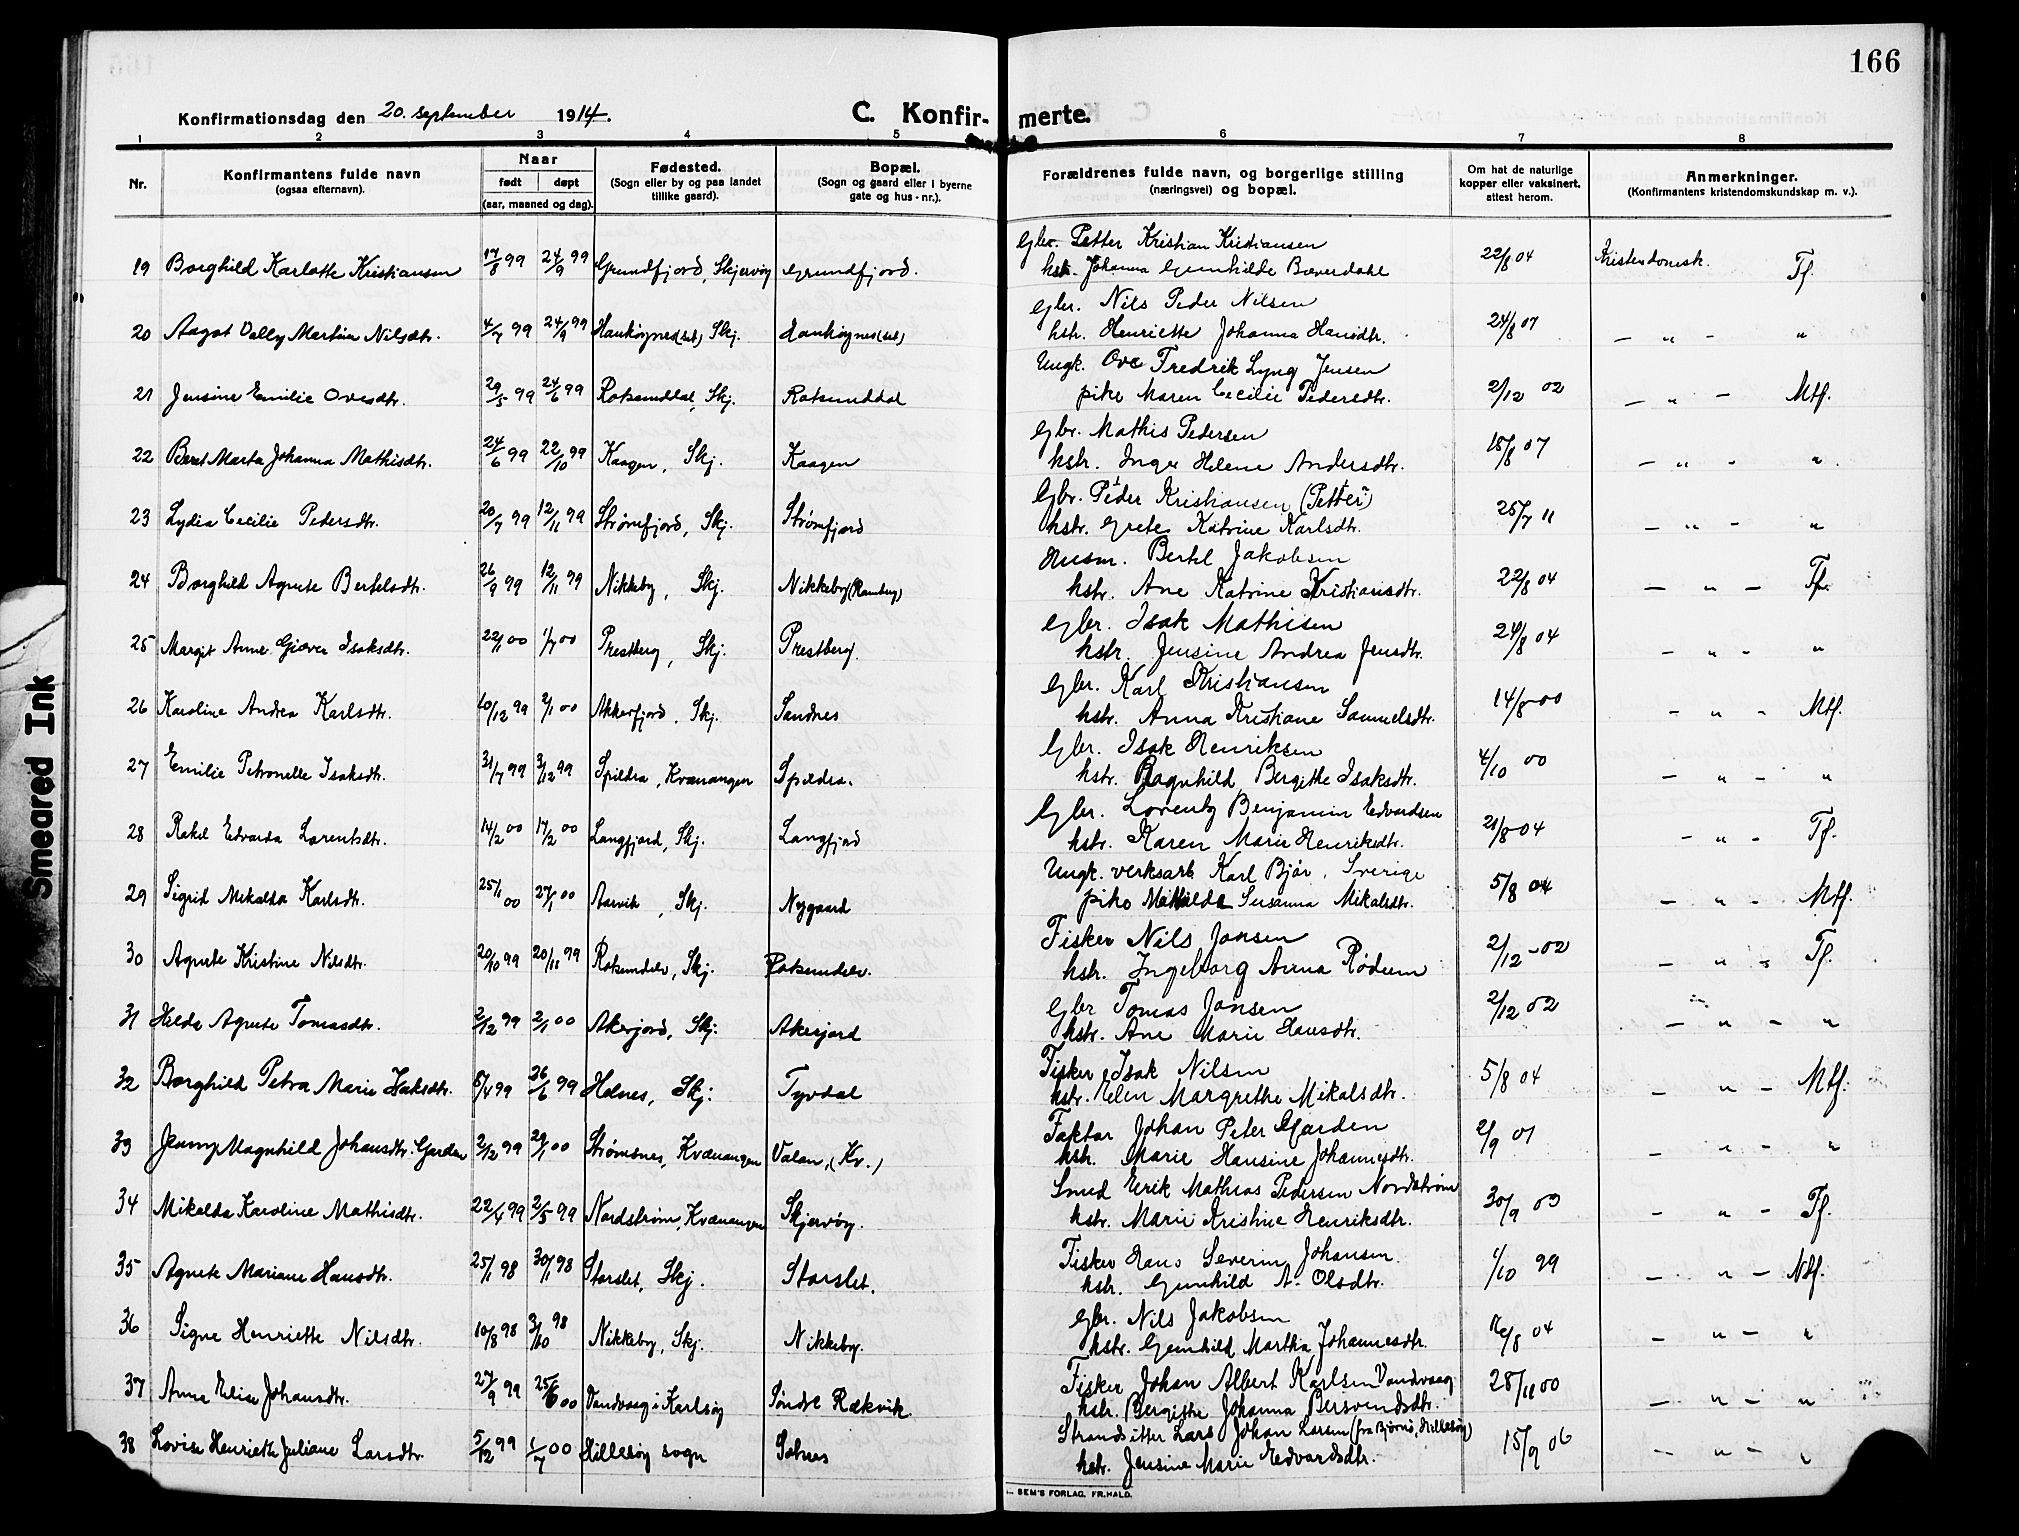 166
Konfirmationsdag den 20. september 1914.
C. Konfir- merte.
1 2 3 4 5 6 7 8
Nr.
Konfirmantens fulde navn
(ogsaa efternavn).
Naar
født døpt
(aar, maaned og dag).
Fødested.
(Sogn eller by og paa landet
tillike gaard).
Bopæl.
(Sogn og gaard eller i byerne
gate og hus-nr.).
Forældrenes fulde navn, og borgerlige stilling
(næringsvei) og bopæl.
Om hat de naturlige
kopper eller vaksinert,
attest herom.
Anmerkninger.
(Konfirmantens kristendomskundskap m. v.).
Gbr. Petter Kristian Kristiansen
19 Borghild Karlotte Kristiansen 17/8 99 24/9 99 Grundfjord, Skjervøy Grundfjord. hstr. Johanna Gunhilde Bæverdahl 22/8 04 Kristendomsk. Tf.
Gbr. Nils Peder Nilsen
20 Aagot Vally Martine Nilsdtr. 4/7 99 24/9 99 Haukøynes(set) Skj. Haukøynes(set) hstr. Henriette Johanna Hansdtr. 24/8 07 — " — "
Ungk. Ove Fredrik Lyng Jensen
21 Jensine Emilie Ovesdtr. 29/5 99 24/6 99 Rotsunddal, Skj. Rotsunddal pike Maren Cecilie Pedersdtr. 2/12 02 — " — Mtf.
Gbr. Mathis Pedersen
22 Beret Marta Johanna Mathisdtr. 24/6 99 22/10 99 Kaagen, Skj. Kaagen hstr. Inger Helene Andersdtr. 18/8 07 — " — "
Gbr. Peder Kristiansen (Petter)
23 Lydia Cecilie Pedersdtr. 20/7 99 12/11 99 Strømfjord, Skj. Strømfjord hstr. Grete Katrine Karlsdtr. 25/7 11 — " — "
Husm. Bertel Jakobsen
24 Borghild Agnete Bertelsdtr. 26/9 99 12/11 99 Nikkeby, Skj. Nikkeby (Ramberg) hstr. Ane Katrine Kristiansdtr. 22/8 04 — " — Tf.
Gbr. Isak Mathisen
25 Margit Anne Giæver Isaksdtr. 22/1 00 1/7 00 Prestberg, Skj. Prestberg. hstr. Jensine Andrea Jensdtr. 24/8 04 — " — "
Gbr. Karl Kristiansen
26 Karoline Andrea Karlsdtr. 10/12 99 2/1 00 Akkerfjord, Skj. Sandnes hstr. Anna Kristiane Samuelsdtr. 14/8 00 — " — Mtf.
Gbr. Isak Henriksen
27 Emilie Petronelle Isaksdtr. 31/7 99 3/12 99 Spildra, Kvænangen Spildra. hstr. Ragnhild Bergitte Isaksdtr. 4/10 00 — " — "
Gbr. Lorentz Benjamin Edvardsen
28 Rakel Edvarda Lorentsdtr. 14/2 00 17/2 00 Langfjord, Skj. Langfjord hstr. Karen Marie Henriksdtr. 21/8 04 — " — Tf.
Ungk. verksarb. Karl Bjør, Sverige
29 Sigrid Mikalda Karlsdtr. 25/1 00 27/1 00 Aarvik, Skj. Nygaard pike Mathilde Susanna Mikalsdtr. 5/8 04 — " — Mtf.
Fisker Nils Jansen
30 Agnete Kristine Nilsdtr. 20/10 99 20/11 99 Rotsundelv, Skj. Rotsundelv. hstr. Ingeborg Anna Rødum 2/12-02 — " — Tf.
Gbr Tomas Jansen
31 Helda Agnete Tomasdtr. 2/12 99 2/1 00 Akerjord, Skj. Akerjord hstr. Ane Marie Hansdtr. 2/12 02 — " — "
Fisker Isak Nilsen
32 Borghild Petra Marie Isaksdtr. 8/4 99 26/6 99 Helnes, Skj. Tyvdal hstr. Elen Margrethe Mikalsdtr. 5/8 04 — " — Mtf.
Faktor Johan Peter Garden
33 Jenny Magnhild Johansdtr. Garden 2/12 99 29/1 00 Strømsnes, Kvænangen Valan, (Kv.) hstr. Marie Hansine Johannesdtr. 2/9 01 — " — "
Smed Erik Mathias Pedersen Nordstrøm
34 Mikalda Karoline Mathisdtr. 22/4 99 2/5 99 Nordstrøm, Kvænangen Skjervøy. hstr. Marie Kristine Henriksdtr. 30/9 03 — " — Tf.
Fisker Hans Severin Johansen
35 Agnete Mariane Hansdtr. 25/1 98 30/1 98 Storslet, Skj. Storslet. hstr. Gunhild A. Olsdtr. 1/10 99 — " — Ntf.
Gbr. Nils Jakobsen
36 Signe Henriette Nilsdtr. 10/8 98 3/10 98 Nikkeby, Skj. Nikkeby. hstr. Gunhild Martha Johannesdtr. 16/8 04 — " — "
Fisker Johan Albert Karlsen Vandvaag
37 Anna Elise Johansdtr. 27/9 99 25/6 00 Vandvaag i Karlsøy Søndre Rækvik. hstr. Bergitte Johanna Bersvendsdtr. 28/11 00 — " — "
Strandsitter Lars Johan Larsen (fra Bjørnø, Hillesøy)
38 Lovise Henriette Juliane Larsdtr. 5/12 99 1/7 00 Hillesøy sogn Sotnes hstr. Jensine Marie Edvardsdtr. 15/9 06 — " — "
SEM'S FORLAG, FR.HALD.
Smeared Ink